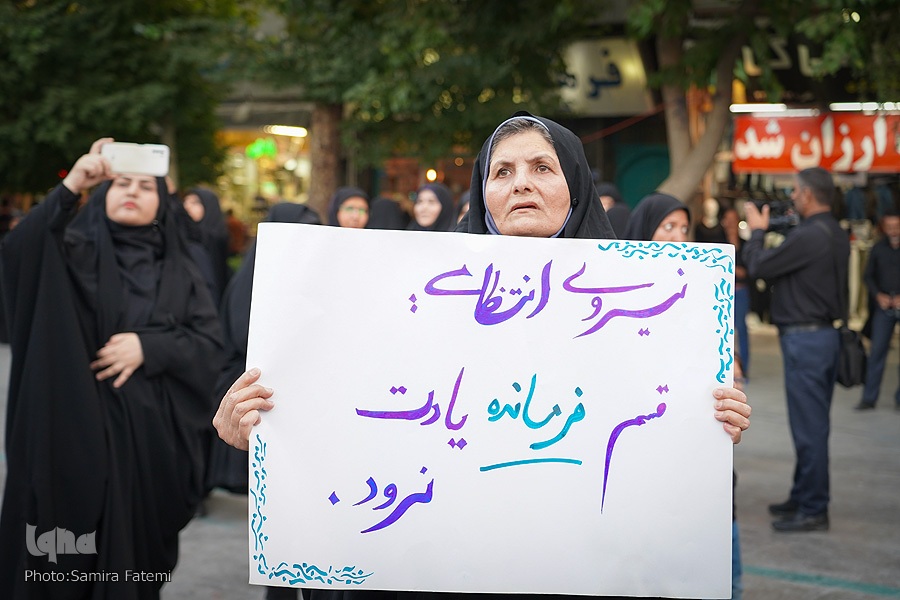 نیروی انتظامی؛
قسم فرمانده یادت
نرود.
ارزان شد
iqna
Photo:Samira Fatemi